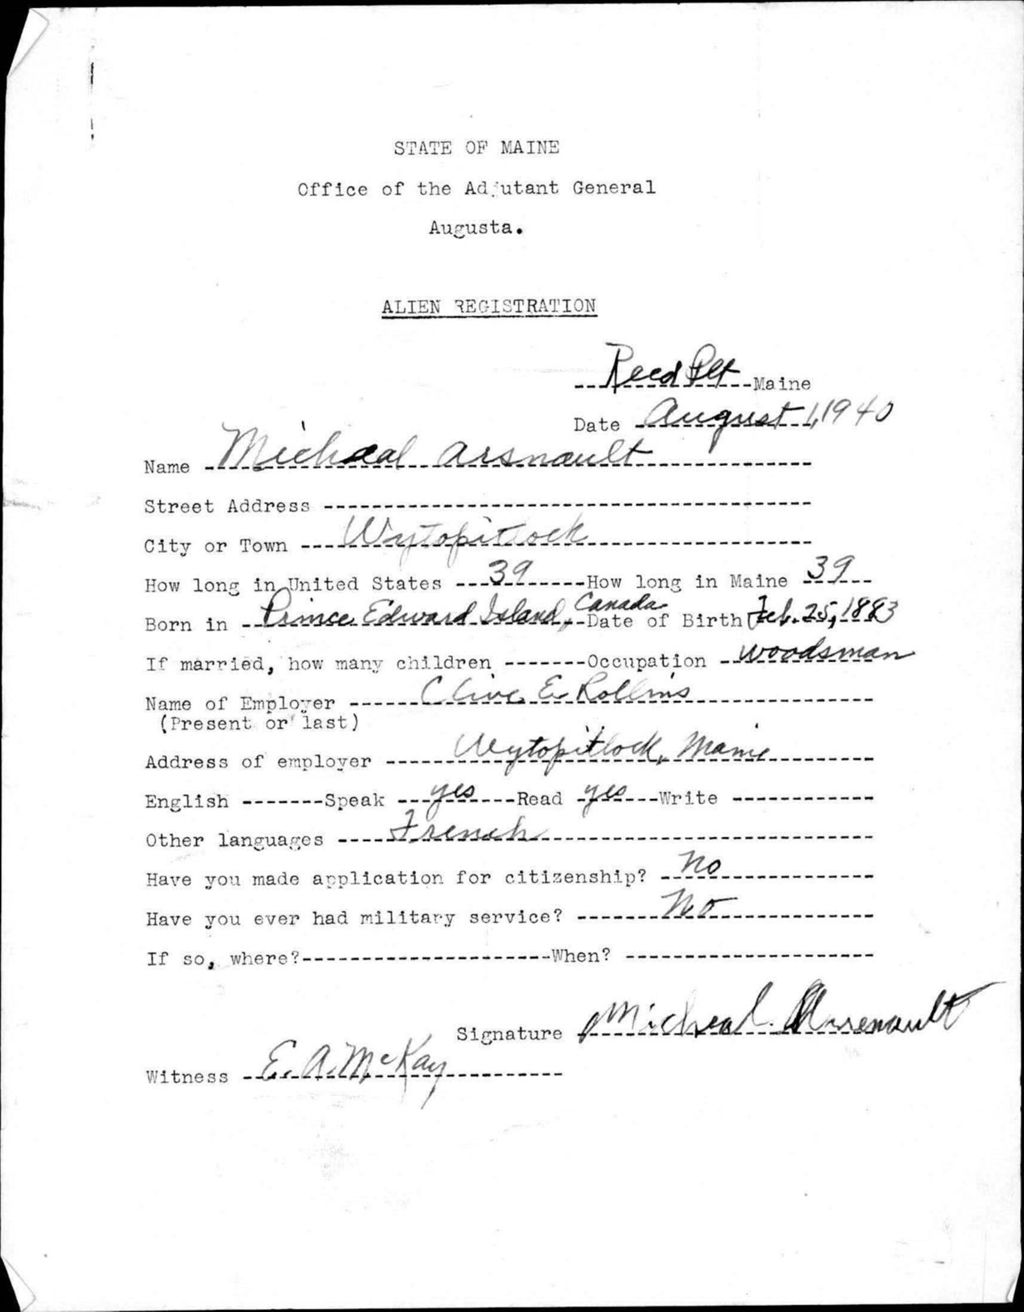 STATE OF MAINE
Office of the Adjutant General
Augusta.
ALIEN REGISTRATION
Reed Plt Maine
Date August 1, 1940
Name Micheal Arsnault
Street Address
City or Town Wytopitlock
How long in United States 39 How long in Maine 39
Born in Prince Edward Island, Canada Date of Birth Feb. 25, 1883
If married, how many children Occupation woodsman
Name of Employer Clive E. Rollins
(Present or last)
Address of employer Wytopitlock, Maine
English Speak yes Read yes Write
Other languages French
Have you made application for citizenship? No
Have you ever had military service? No
If so, where? When?
Signature Micheal Arsenault
Witness E. A. McKay